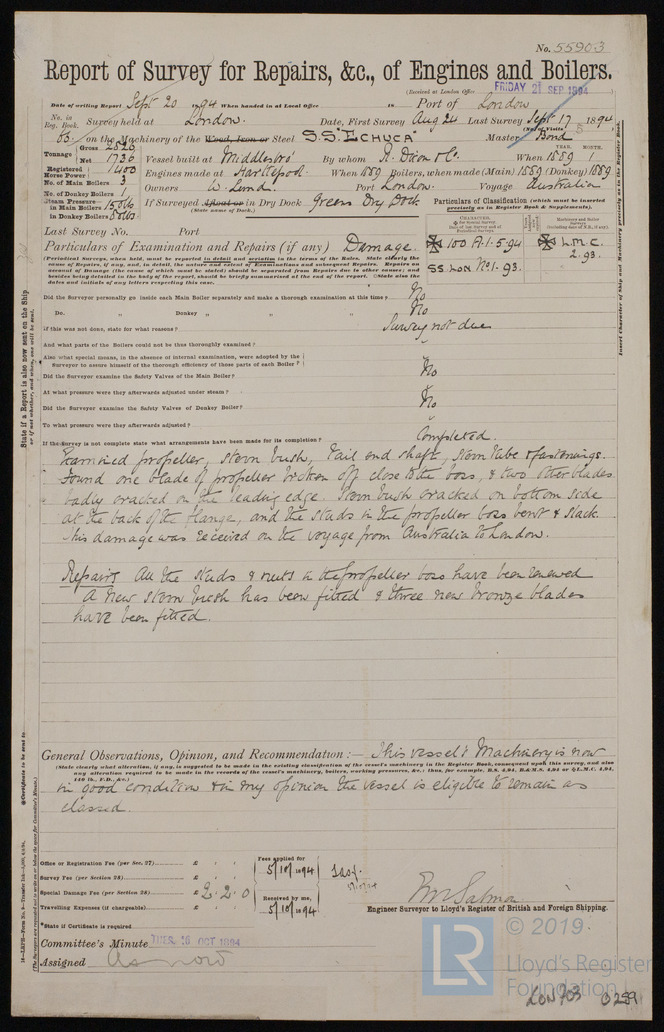 No. 55903
Report of Survey for Repairs, &c., of Engines and Boilers.
(Received at London Office FRIDAY 21 SEP 1894
Date of writing Report Sept 20 1894 When handed in at Local Office 18 Port of London
No. in Reg. Book. Survey held at London. Date, First Survey Aug 24 Last Survey Sept 17 1894
(No. of Visits 5)
83. on the Machinery of the Wood, Iron or Steel S.S. "ECHUCA" Master Bond
Tonnage Gross 2520 Net 1736 Vessel built at Middlesbro' By whom R. Dixon & Co. When 1889 1
YEAR. MONTH.
Registered Horse Power 1400 Engines made at Hartlepool. When 1889 Boilers, when made (Main) 1889 (Donkey) 1889
No. of Main Boilers 3
No. of Donkey Boilers 1 Owners W. Lund. Port London. Voyage Australia
Steam Pressure in Main Boilers 150 lbs in Donkey Boilers 80 lbs
If Surveyed Afloat or in Dry Dock Greens Dry Dock
(State name of Dock.)
Particulars of Classification (which must be inserted precisely as in Register Book & Supplements).
Last Survey No. Port
Particulars of Examination and Repairs (if any) Damage.
100 A.1. 5.94
SS. LON. No 1. 93.
L.M.C. 2.93.
(Periodical Surveys, when held, must be reported in detail and seriatim in the terms of the Rules. State clearly the cause of Repairs, if any, and, in detail, the nature and extent of Examinations and subsequent Repairs. Repairs on account of Damage (the cause of which must be stated) should be separated from Repairs due to other causes; and besides being detailed in the body of the report, should be briefly summarised at the end of the report. State also the dates and initials of any letters respecting this case.
Did the Surveyor personally go inside each Main Boiler separately and make a thorough examination at this time? No
Do. " Donkey " " " No
If this was not done, state for what reasons? Survey not due
And what parts of the Boilers could not be thus thoroughly examined?
Also what special means, in the absence of internal examination, were adopted by the Surveyor to assure himself of the thorough efficiency of those parts of each Boiler?
Did the Surveyor examine the Safety Valves of the Main Boiler? No
At what pressure were they afterwards adjusted under steam?
Did the Surveyor examine the Safety Valves of Donkey Boiler? No
To what pressure were they afterwards adjusted?
If the Survey is not complete state what arrangements have been made for its completion? Completed.
Examined propeller, stern bush, tail end shaft, stern tube & fastenings.
Found one blade of propeller broken off close to the boss, & two other blades
badly cracked on the leading edge. Stern bush cracked on bottom side
at the back of the flange, and the studs in the propeller boss bent & slack.
This damage was received on the voyage from Australia to London.
Repairs All the studs & nuts in the propeller boss have been renewed
A new stern bush has been fitted & three new bronze blades
have been fitted.
General Observations, Opinion, and Recommendation:— This vessel's Machinery is now
(State clearly what alteration, if any, is suggested to be made in the existing classification of the vessel's machinery in the Register Book, consequent upon this survey, and also any alteration required to be made in the records of the vessel's machinery, boilers, working pressures, &c.; thus, for example, B.S. 4,94, B.&M.S. 4,94 or L.M.C. 4,94, 140 lb., F.D., &c.)
in good condition & in my opinion the vessel is eligible to remain as
classed.
Office or Registration Fee (per Sec. 27) £
Survey Fee (per Section 28) £
Special Damage Fee (per Section 28) £ 2 . 2 . 0
Travelling Expenses (if chargeable) £
Fees applied for 5/10/1894
Received by me, 5/10/1894
*State if Certificate is required
Engineer Surveyor to Lloyd's Register of British and Foreign Shipping.
Committee's Minute TUES. 16 OCT 1894
Assigned As now
State if a Report is also now sent on the Ship
or if not whether, and when, one will be sent.
Insert Character of Ship and Machinery precisely as in the Register Book.
© 2019.
LR
Lloyd's Register
Foundation
LON 703 0289